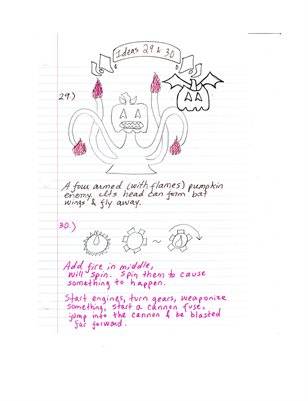 Ideas 29 & 30
29.)
A four armed (with flames) pumpkin
enemy. Its head can form bat
wings & fly away.
30.)
Add fire in middle,
will spin. Spin them to cause
something to happen.
Start engines, turn gears, weaponize
something, start a cannon fuse,
jump into the cannon & be blasted
far forward.